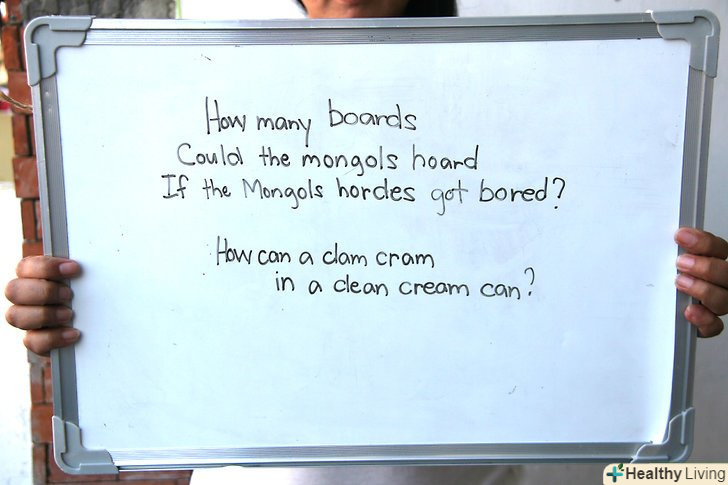 How many boards
Could the mongols hoard
If the Mongols hordes got bored?
How can a clam cram
in a clean cream can?
Healthy Living